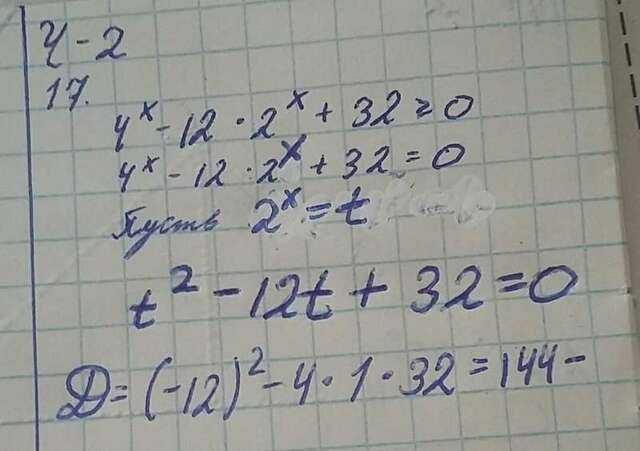 Ч-2
17.
4ˣ - 12 · 2ˣ + 32 ≥ 0
4ˣ - 12 · 2ˣ + 32 = 0
Пусть 2ˣ = t
t² - 12t + 32 = 0
D = (-12)² - 4 · 1 · 32 = 144 -